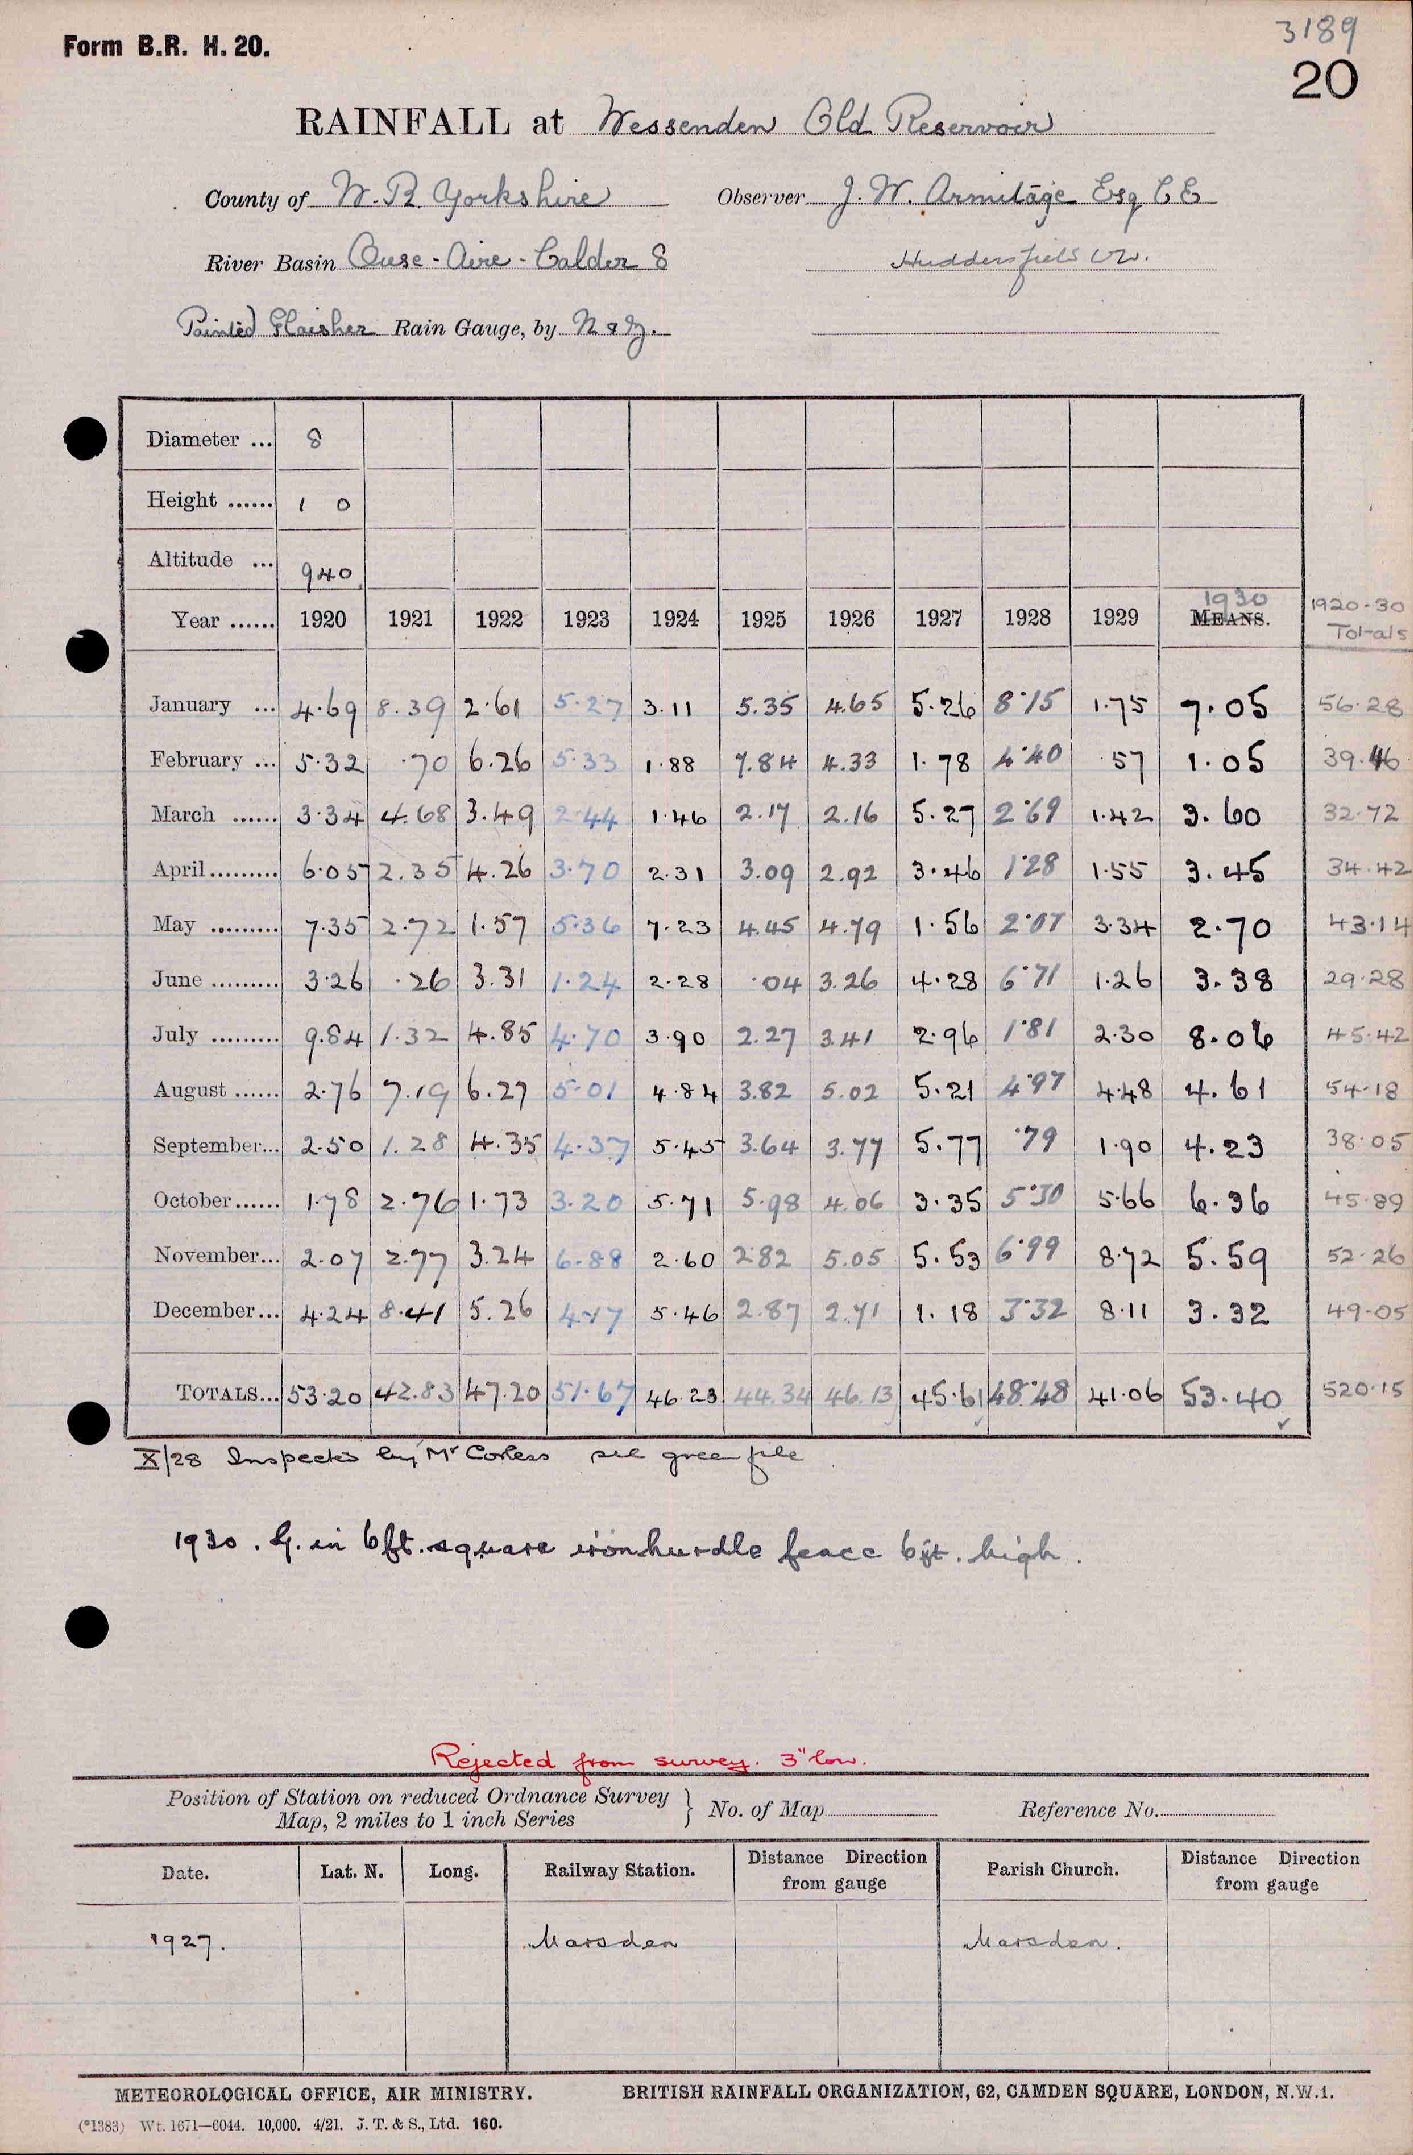 Form B.R. H. 20.
3189
20
RAINFALL at Wessenden Old Reservoir
County of W. R. Yorkshire Observer J. W. Armitage Esq C E
River Basin Ouse - Aire - Calder 8 Huddersfield W.
Painted Glaisher Rain Gauge, by N & Z.
Diameter ... 8
Height ...... 1 0
Altitude ... 940
Year ...... 1920 1921 1922 1923 1924 1925 1926 1927 1928 1929 1930 MEANS. 1920-30 Totals
January ... 4.69 8.39 2.61 5.27 3.11 5.35 4.65 5.26 8.15 1.75 7.05 56.28
February ... 5.32 .70 6.26 5.33 1.88 7.84 4.33 1.78 4.40 .57 1.05 39.46
March ...... 3.34 4.68 3.49 2.44 1.46 2.17 2.16 5.27 2.69 1.42 3.60 32.72
April ......... 6.05 2.35 4.26 3.70 2.31 3.09 2.92 3.46 1.28 1.55 3.45 34.42
May ......... 7.35 2.72 1.57 5.36 7.23 4.45 4.79 1.56 2.07 3.34 2.70 43.14
June ......... 3.26 .26 3.31 1.24 2.28 .04 3.26 4.28 6.71 1.26 3.38 29.28
July ......... 9.84 1.32 4.85 4.70 3.90 2.27 3.41 2.96 1.81 2.30 8.06 45.42
August ...... 2.76 7.19 6.27 5.01 4.84 3.82 5.02 5.21 4.97 4.48 4.61 54.18
September... 2.50 1.28 4.35 4.37 5.45 3.64 3.77 5.77 .79 1.90 4.23 38.05
October...... 1.78 2.76 1.73 3.20 5.71 5.98 4.06 3.35 5.30 5.66 6.36 45.89
November... 2.07 2.77 3.24 6.88 2.60 2.82 5.05 5.53 6.99 8.72 5.59 52.26
December... 4.24 8.41 5.26 4.17 5.46 2.87 2.71 1.18 3.32 8.11 3.32 49.05
TOTALS... 53.20 42.83 47.20 51.67 46.23 44.34 46.13 45.61 48.48 41.06 53.40 520.15
X/28 Inspected by Mr Corless see green file
1930. G. in 6ft. square iron hurdle fence 6ft. high.
Rejected from survey. 3" low.
Position of Station on reduced Ordnance Survey Map, 2 miles to 1 inch Series } No. of Map Reference No.
Date. Lat. N. Long. Railway Station. Distance Direction from gauge Parish Church. Distance Direction from gauge
1927. Marsden Marsden.
METEOROLOGICAL OFFICE, AIR MINISTRY. BRITISH RAINFALL ORGANIZATION, 62, CAMDEN SQUARE, LONDON, N.W.1.
(*1383) Wt. 1671—6044. 10,000. 4/21. J. T. & S., Ltd. 160.